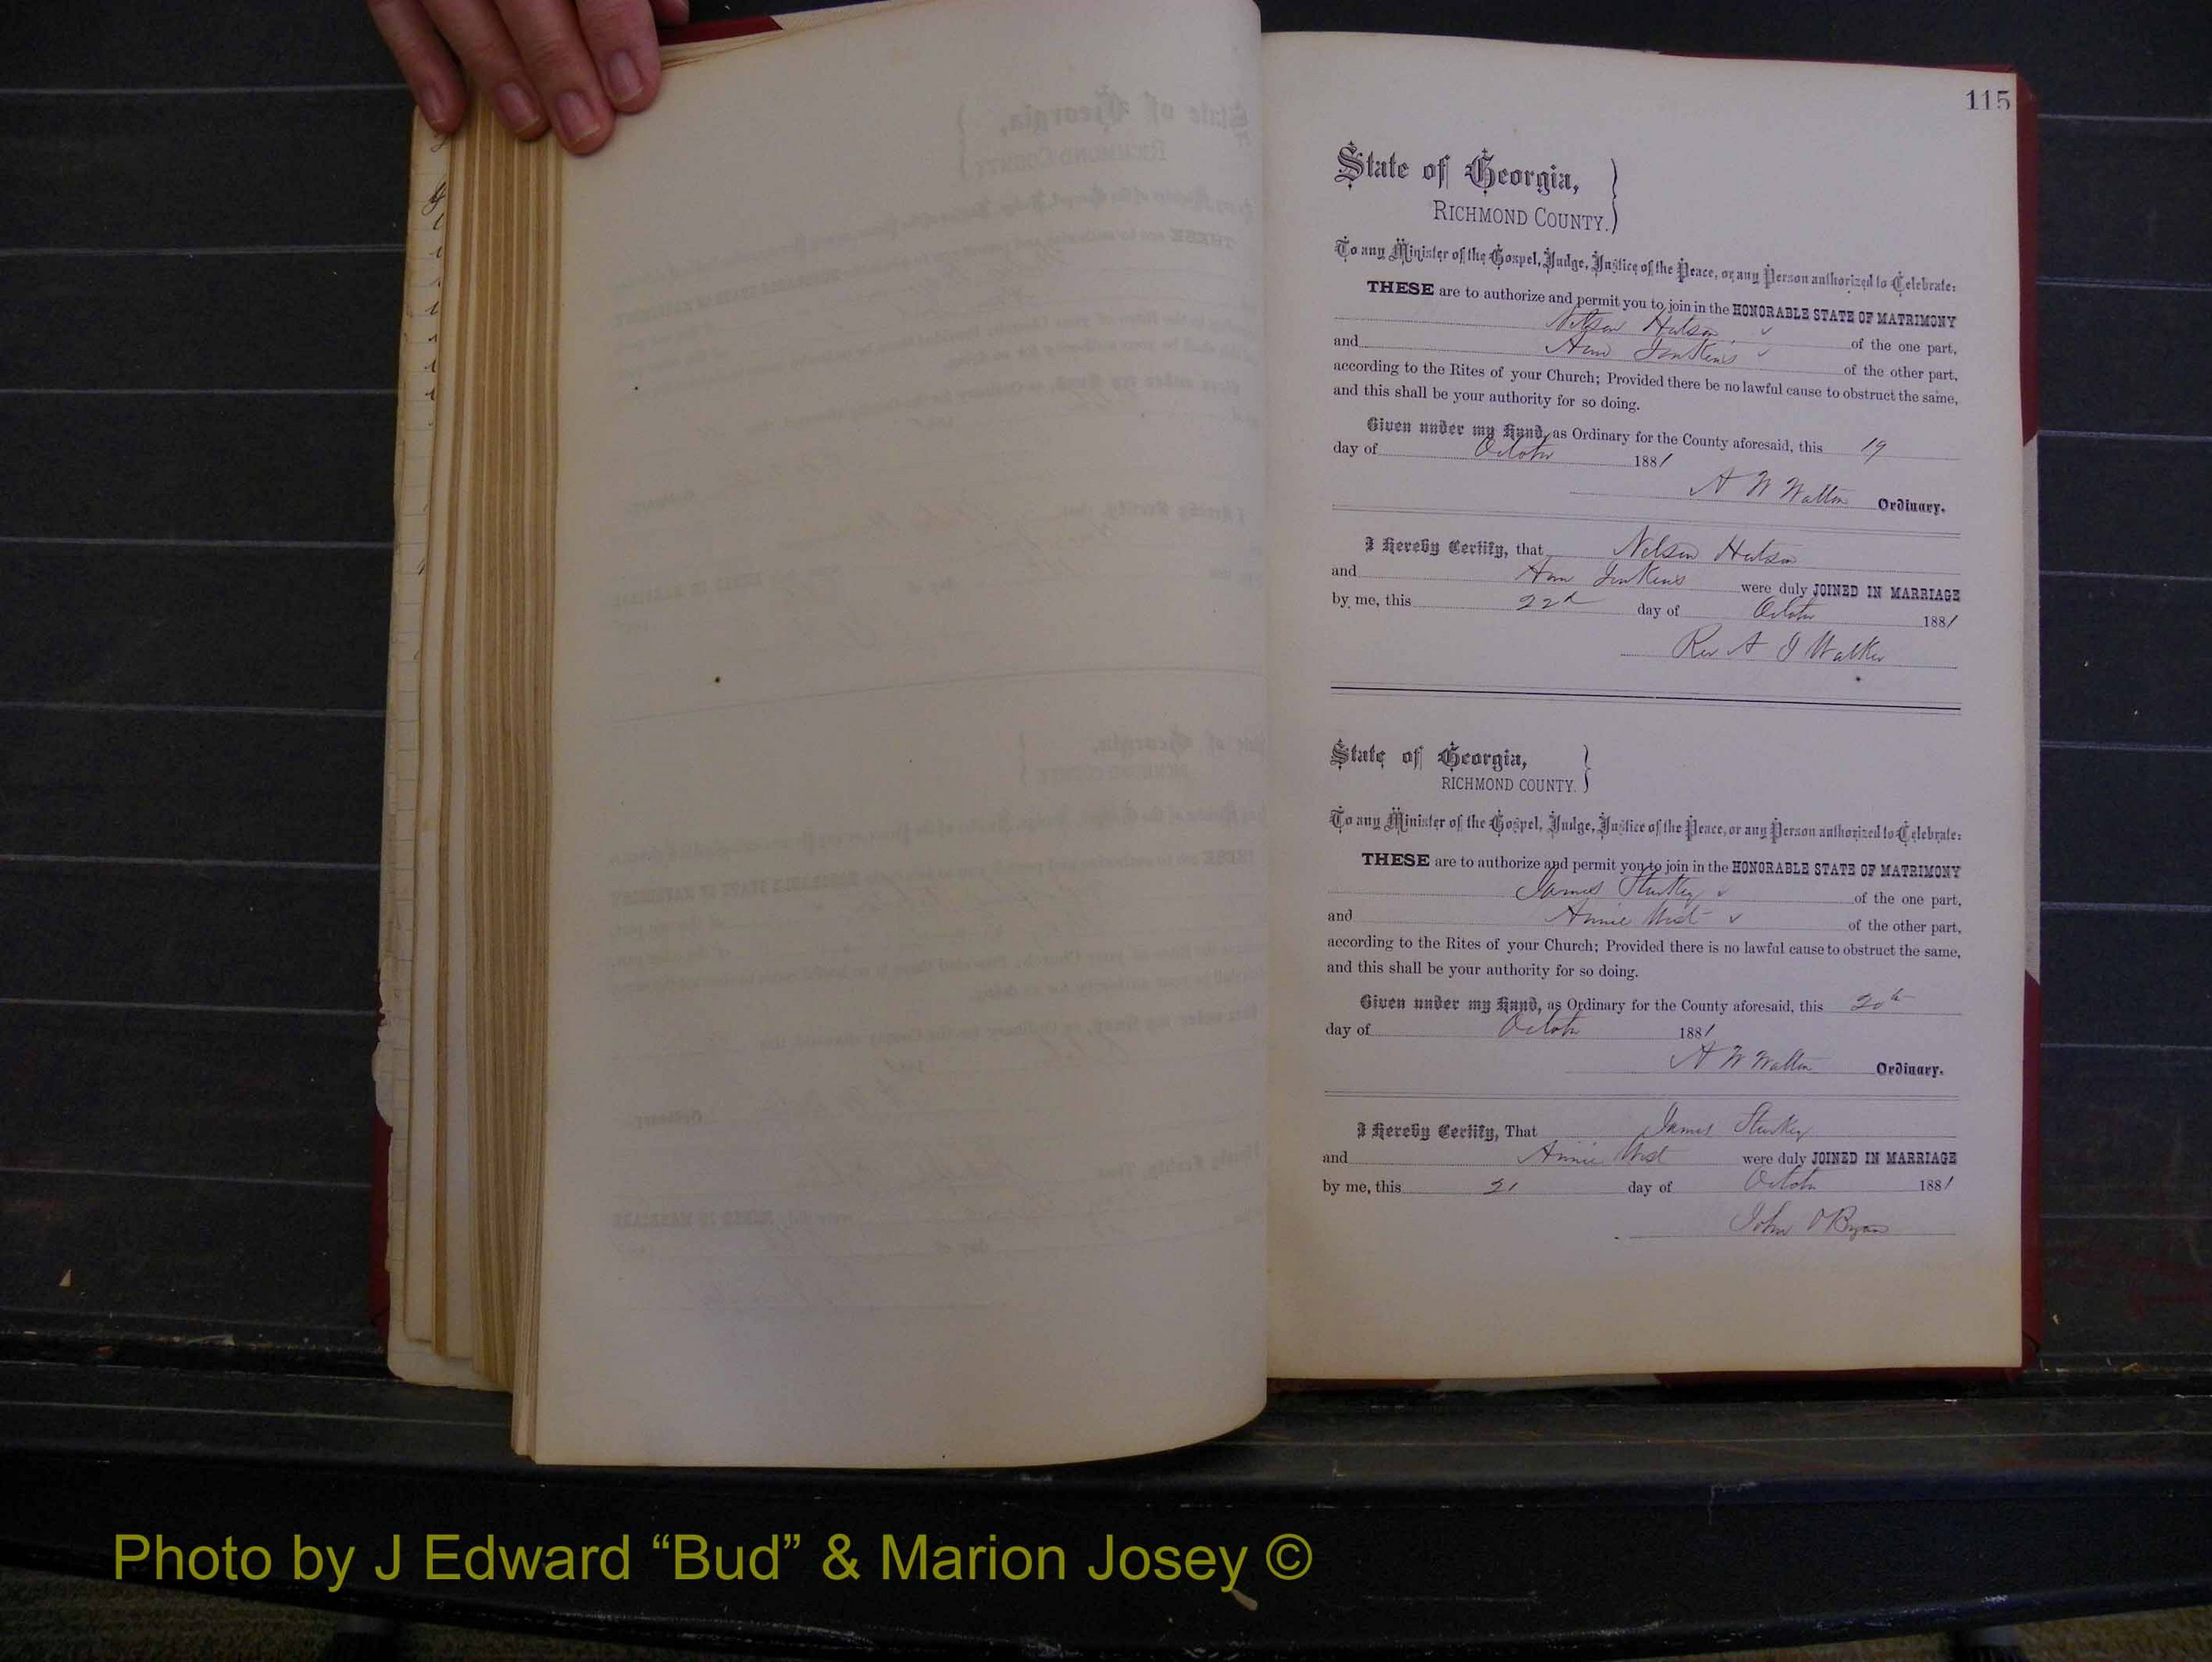 115
State of Georgia,
RICHMOND COUNTY.
To any Minister of the Gospel, Judge, Justice of the Peace, or any Person authorized to Celebrate:
THESE are to authorize and permit you to join in the HONORABLE STATE OF MATRIMONY
Nelson Hutson of the one part,
and Ann Jenkins of the other part,
according to the Rites of your Church; Provided there be no lawful cause to obstruct the same,
and this shall be your authority for so doing.
Given under my Hand, as Ordinary for the County aforesaid, this 19
day of October 1881
A W Walton Ordinary.
I Hereby Certify, that Nelson Hutson
and Ann Jenkins were duly JOINED IN MARRIAGE
by me, this 22d day of October 1881
Rev A J Walker
State of Georgia,
RICHMOND COUNTY.
To any Minister of the Gospel, Judge, Justice of the Peace, or any Person authorized to Celebrate:
THESE are to authorize and permit you to join in the HONORABLE STATE OF MATRIMONY
James Sturkey of the one part,
and Annie West of the other part,
according to the Rites of your Church; Provided there is no lawful cause to obstruct the same,
and this shall be your authority for so doing.
Given under my Hand, as Ordinary for the County aforesaid, this 20th
day of October 1881
A W Walton Ordinary.
I Hereby Certify, That James Sturkey
and Annie West were duly JOINED IN MARRIAGE
by me, this 21 day of October 1881
John O Bryan
Photo by J Edward “Bud” & Marion Josey ©